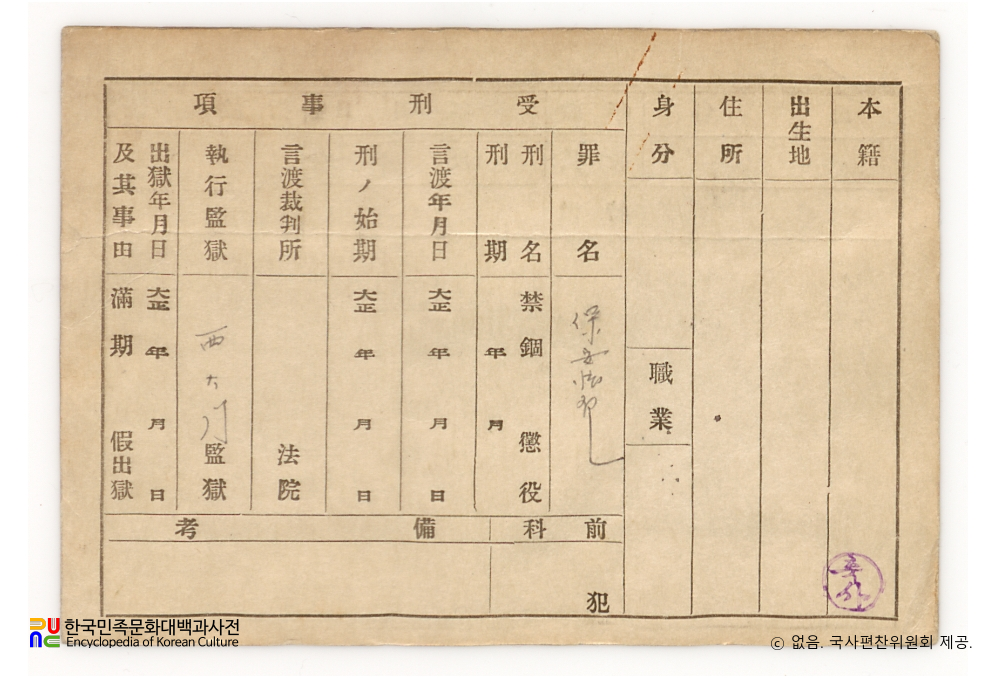 本籍
出生地
住所
身分
職業
受刑事項
罪名
保安法犯
刑名
禁錮 懲役
刑期
年 月
言渡年月日
大正 年 月 日
刑ノ始期
大正 年 月 日
言渡裁判所
法院
執行監獄
西大門監獄
出獄年月日
大正 年 月 日
及其事由
滿期 假出獄
前科
犯
備考
한국민족문화대백과사전
Encyclopedia of Korean Culture
ⓒ 없음. 국사편찬위원회 제공.